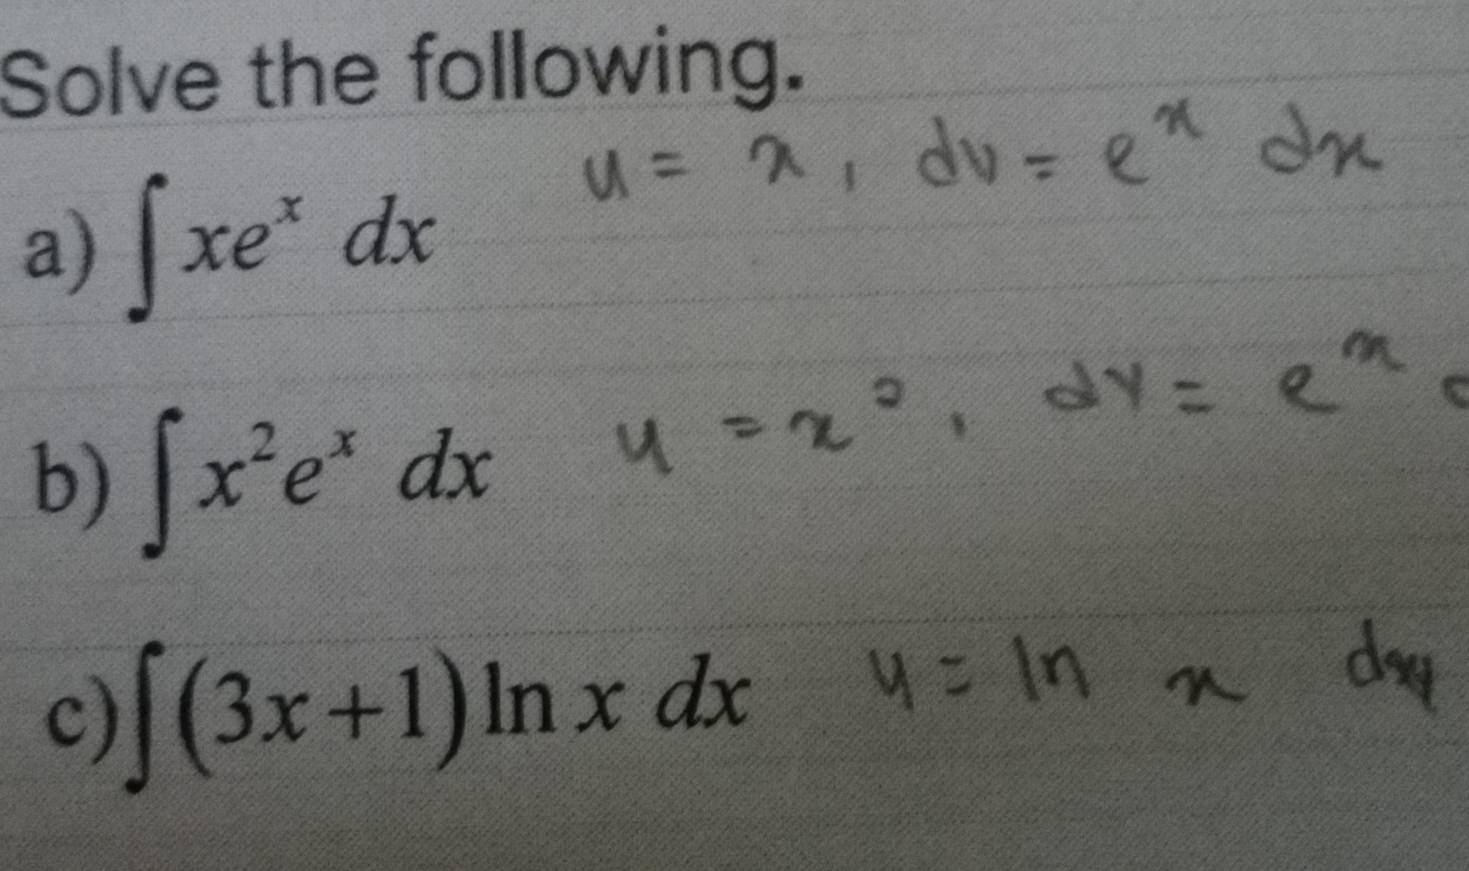 Solve the following.
u = x, dv = eˣ dx
a) ∫ xeˣ dx
b) ∫ x²eˣ dx u = x², dv = eˣ
c) ∫(3x+1) ln x dx u = ln x